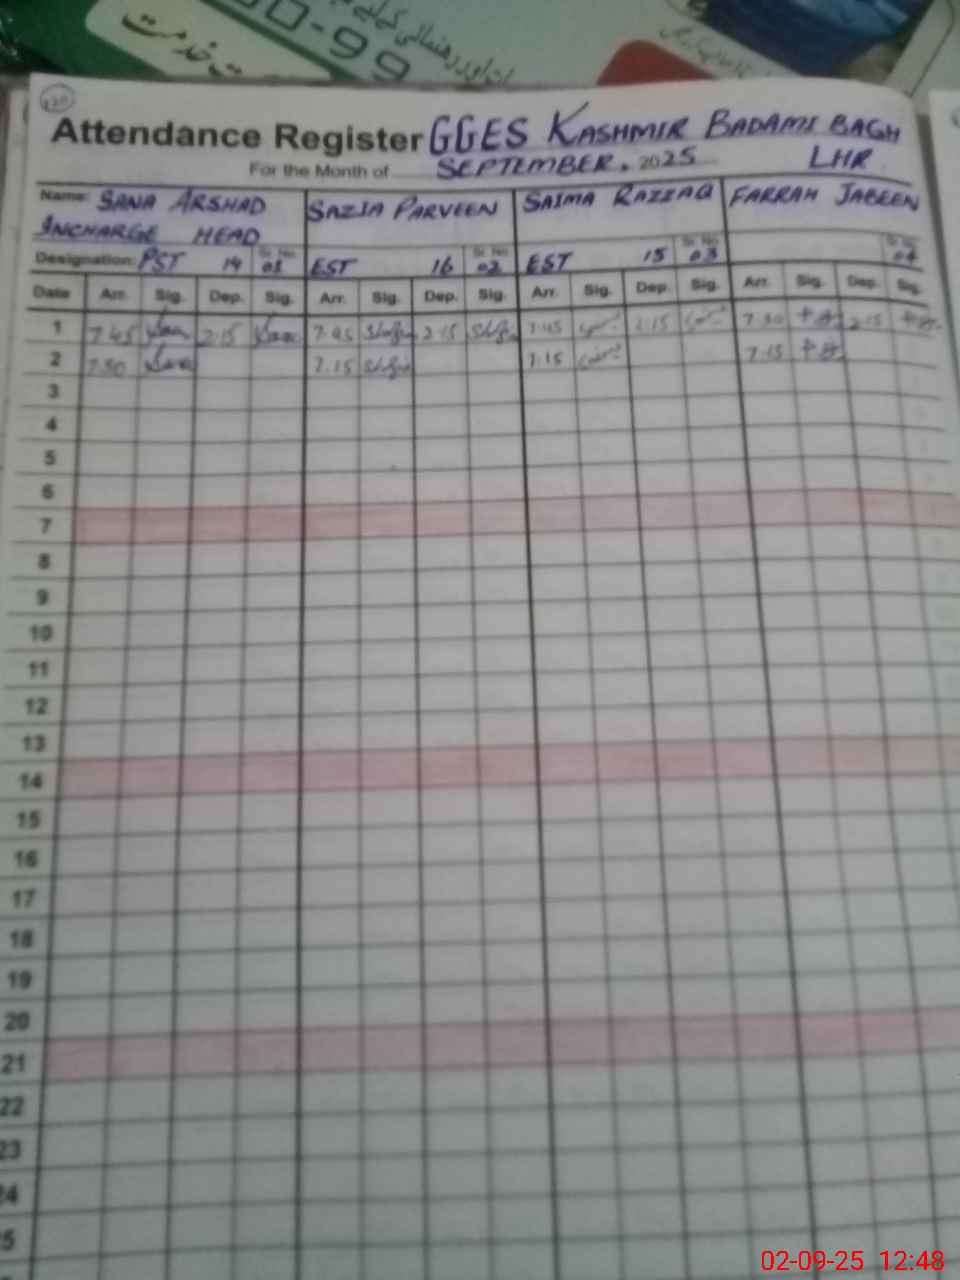 خدمت
اور رہنمائی کیلئے
Attendance Register GGES KASHMIR BADAMI BAGH
For the Month of SEPTEMBER. 2025 LHR
Name: SANA ARSHAD SAZIA PARVEEN SAIMA RAZZAQ FARRAH JABEEN
INCHARGE HEAD
Designation: PST 14 Sr. No. 01 EST 16 Sr. No. 02 EST 15 Sr. No. 03 Sr. No. 04
Date Arr. Sig. Dep. Sig. Arr. Sig. Dep. Sig. Arr. Sig. Dep. Sig. Arr. Sig. Dep. Sig.
1 7.45 2.15 7.45 2.15 7.45 2.15 7.30 2.15
2 7.30 7.15 7.15 7.15
3
4
5
6
7
8
9
10
11
12
13
14
15
16
17
18
19
20
21
22
23
24
25
02-09-25 12:48